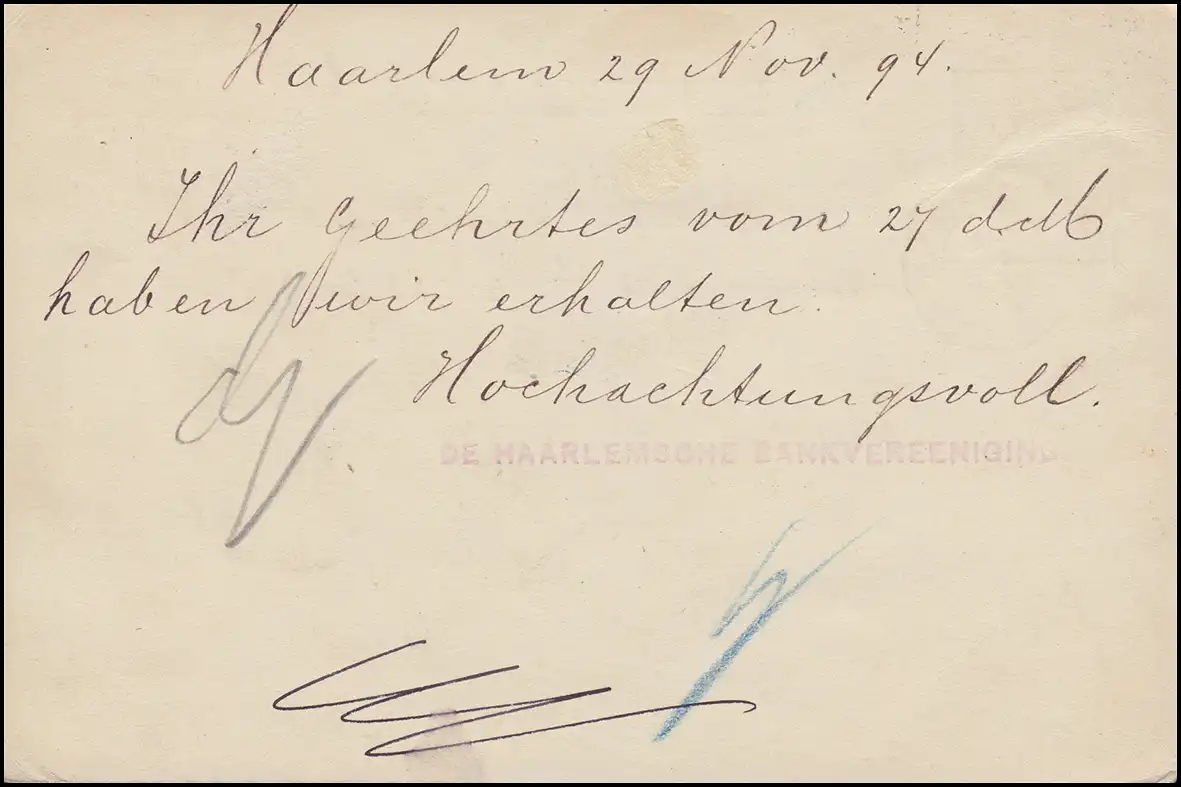 Haarlem 29 Nov. 94.
Ihr Geehrtes vom 27
haben wir erhalten.
Hochachtungsvoll.
DE HAARLEMSCHE BANKVEREENIGING